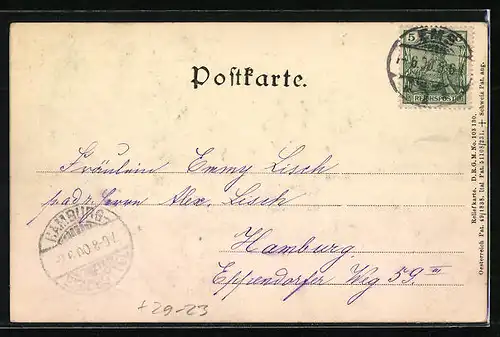 Postkarte.
5
EMS
REICHSPOST
Fräulein Emmy Lisch
p. adr. Herrn Alex. Lisch
Hamburg
Eppendorfer Weg 59 III
HAMBURG
+ 29-23
Reliefkarte. D.R.G.M. No. 103 130.
Oesterreich Pat. 49/1838. Ital Pat. 51103/231. + Schweiz Pat. ang.